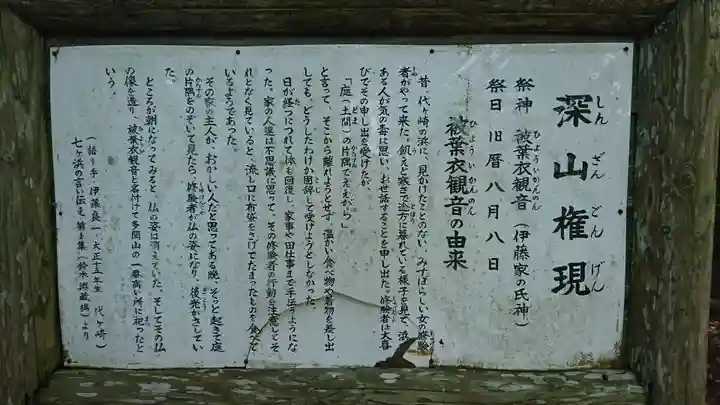 深山権現
しんざんごんげん
祭神 被葉衣観音(伊藤家の氏神)
ひよういかんのん
祭日 旧暦八月八日
被葉衣観音の由来
ひようい かんのん
昔、代ヶ崎の浜に、見かけたことのない、みすぼらしい女の修験
者がやって来た。飢えと寒さで途方に暮れている様子を見て、浜の
ある人が気の毒に思い、お世話することを申し出た。修験者は大喜
びでその申し出を受けたが、
「庭(土間)の片隅でそえがら」
と言って、そこから離れようとせず、温かい食べ物や着物を差し出
しても、どうしたわけか固辞して受けようとしなかった。
日が経つにつれて体も回復し、家事や田仕事まで手伝うようにな
った。家の人達は不思議に思って、その修験者の行動を注意してそ
れとなく見ていると、流し口に布袋をさげてたまったものを食べて
いるようであった。
その家の主人が、おかしい人だと思ってある晩、そっと起きて庭
の片隅をのぞいて見たら、修験者が仏の姿になり、後光がさしてい
た。
ところが朝になってみると、仏の姿は消えていた。そしてその仏
の像を造り、被葉衣観音と名付けて多聞山の一番高い所に祀ったと
いう。
(語り手・伊藤良一・大正十五年生 代ヶ崎)
七ヶ浜の言い伝え 第 集(鈴木 編)より